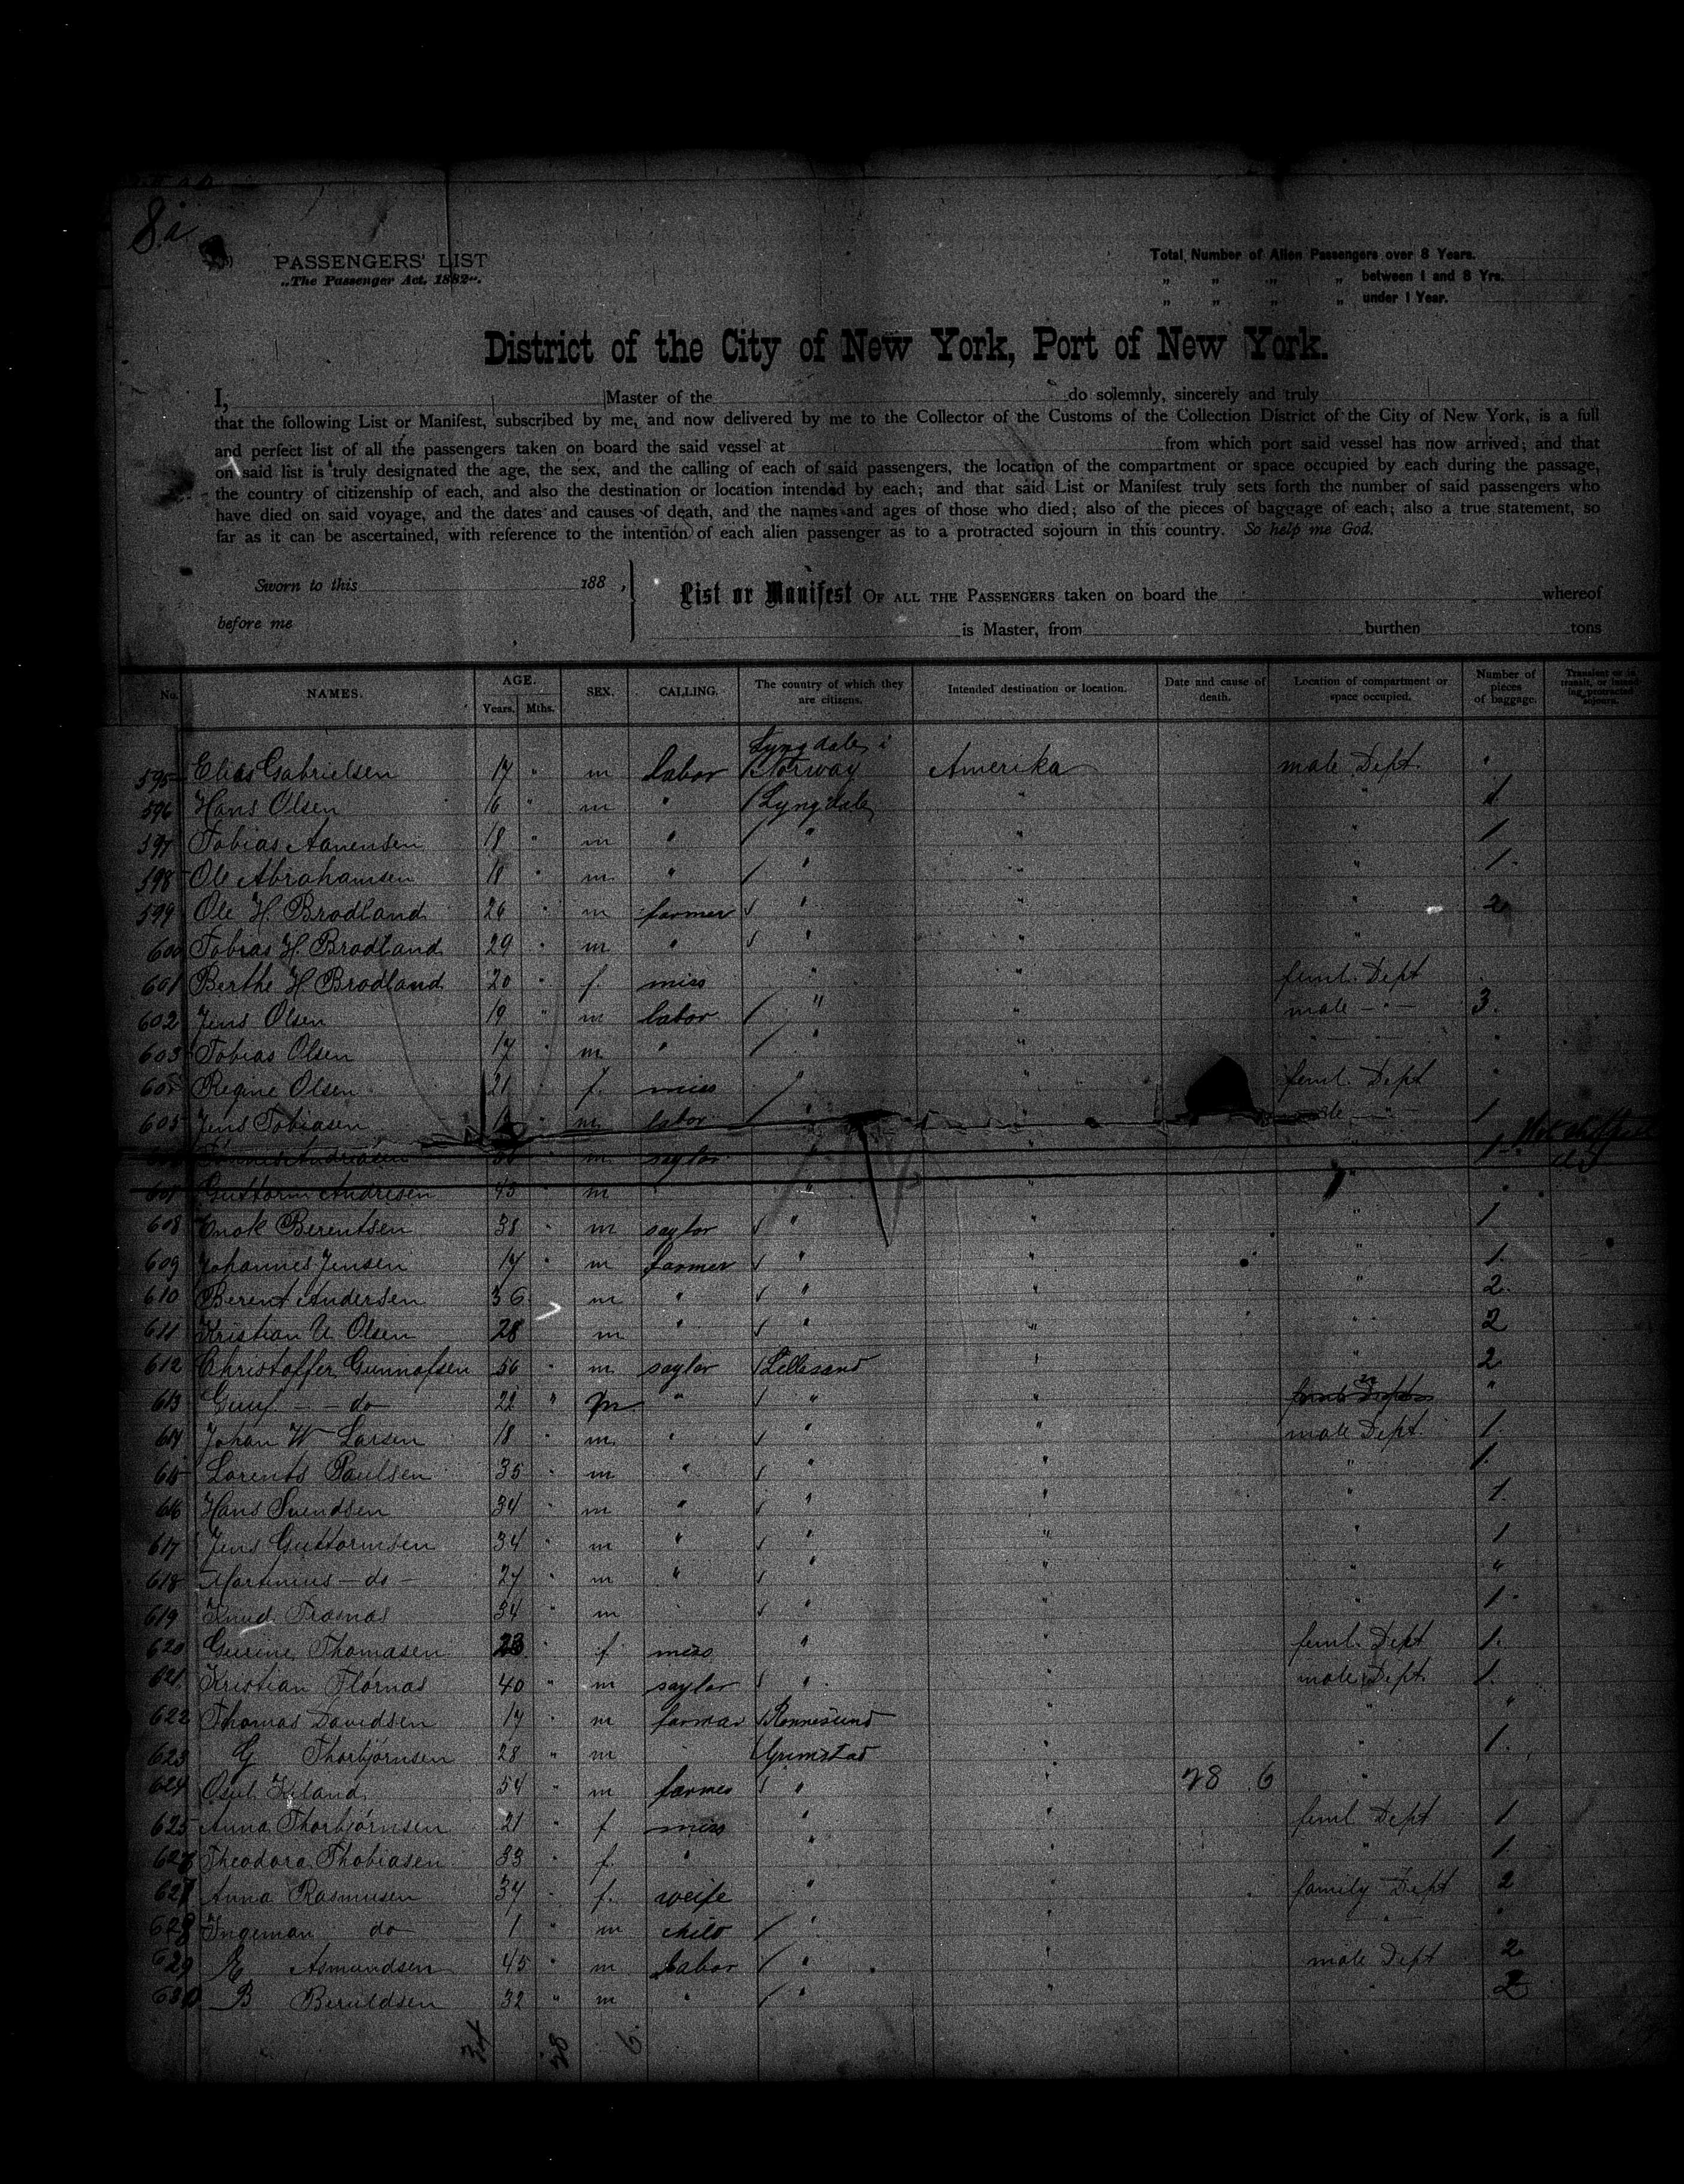 8i
PASSENGERS' LIST
„The Passenger Act, 1882".
Total Number of Alien Passengers over 8 Years.
„ „ „ „ between 1 and 8 Yrs.
„ „ „ „ under 1 Year.
District of the City of New York, Port of New York.
I, Master of the do solemnly, sincerely and truly
that the following List or Manifest, subscribed by me, and now delivered by me to the Collector of the Customs of the Collection District of the City of New York, is a full
and perfect list of all the passengers taken on board the said vessel at from which port said vessel has now arrived; and that
on said list is truly designated the age, the sex, and the calling of each of said passengers, the location of the compartment or space occupied by each during the passage,
the country of citizenship of each, and also the destination or location intended by each; and that said List or Manifest truly sets forth the number of said passengers who
have died on said voyage, and the dates and causes of death, and the names and ages of those who died; also of the pieces of baggage of each; also a true statement, so
far as it can be ascertained, with reference to the intention of each alien passenger as to a protracted sojourn in this country. So help me God.
Sworn to this 188 ,
before me
List or Manifest OF ALL THE PASSENGERS taken on board the whereof
is Master, from burthen tons
No. NAMES. AGE. Years. Mths. SEX. CALLING. The country of which they are citizens. Intended destination or location. Date and cause of death. Location of compartment or space occupied. Number of pieces of baggage. Transient or in transit, or intending protracted sojourn.
Lyngdale i
595 Elias Gabrielsen 17 " m labor Norway Amerika male Dept. "
596 Hans Olsen 16 " m " Lyngdale " " 1
597 Tobias Aanensen 18 " m " " " " 1
598 Ole Abrahamsen 18 " m " " " " 1
599 Ole H. Brodland 26 " m farmer " " " 2
600 Tobias H. Brodland 29 " m " " " "
601 Berthe H. Brodland 20 " f. miss " " feml. Dept
602 Jens Olsen 19 " m labor " " male - " - 3.
603 Tobias Olsen 17 " m " " " - " - "
604 Regine Olsen 21 " f. miss " " feml. Dept "
605 Jens Tobiasen m labor " " male - " - 1
Andreasen m saylor " " 1
607 Guttorm Andresen 43 " m " " " "
608 Enok Berentsen 38 " m saylor " " " 1
609 Johannes Jensen 17 " m farmer " " " 1.
610 Berent Andersen 36 m " " " " 2.
611 Kristian U. Olsen 28 m " " " " 2
612 Christoffer Gunnofsen 56 " m saylor Lillesand " " 2
613 - do 22 " m " " " "
614 Johan W Larsen 18 " m. " " " male Dept. 1.
615 Lorents Paulsen 35 " m " " " " 1.
616 Hans Svendsen 34 " m " " " " 1.
617 Jens Guttormsen 34 " m " " " " 1
618 Martinius - do - 27 " m " " " " "
619 Knud 34 " m " " " " 1.
620 Thomasen 23 " f miss " " feml. Dept 1.
621 Kristian 40 " m saylor " " male Dept. 1.
622 Thomas Davidsen 17 " m farmar " " "
623 G Thorbjørnsen 28 " m Grimstad " " 1.
624 54 " m farmer " " 28 6 "
625 Anna Thorbjørnsen 21 " f miss " " feml Dept 1
626 Theodora Thobiasen 33 " f. " " " " 1.
627 Anna Rasmusen 34 " f. weife " " family Dept 2
628 Ingeman do 1 " m child " " " "
629 E Asmundsen 45 " m Labor " " male Dept 2
630 B Beruldsen 32 " m " " " " 2
34 28 6.